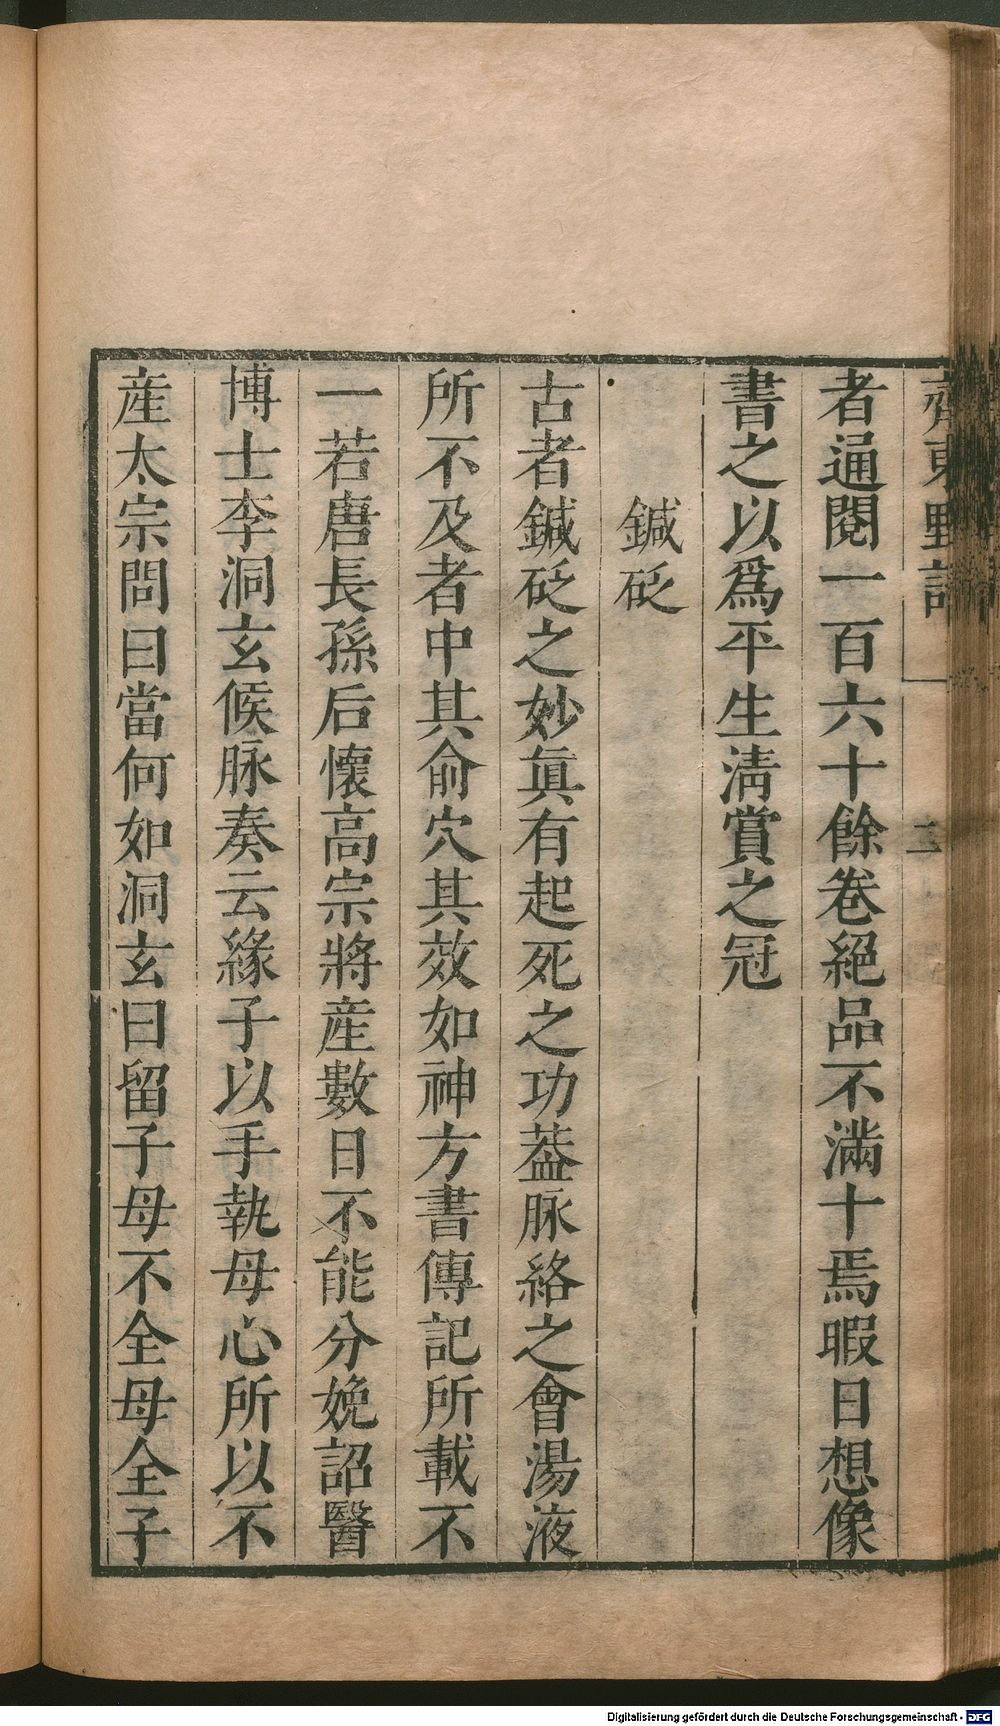 齊東野語
二
者通閱一百六十餘卷絕品不滿十焉暇日想像
書之以爲平生淸賞之冠
鍼砭
古者鍼砭之妙眞有起死之功葢脉絡之會湯液
所不及者中其俞穴其效如神方書傳記所載不
一若唐長孫后懷高宗將産數日不能分娩詔醫
博士李洞玄候脉奏云緣子以手執母心所以不
産太宗問曰當何如洞玄曰留子母不全母全子
Digitalisierung gefördert durch die Deutsche Forschungsgemeinschaft - DFG